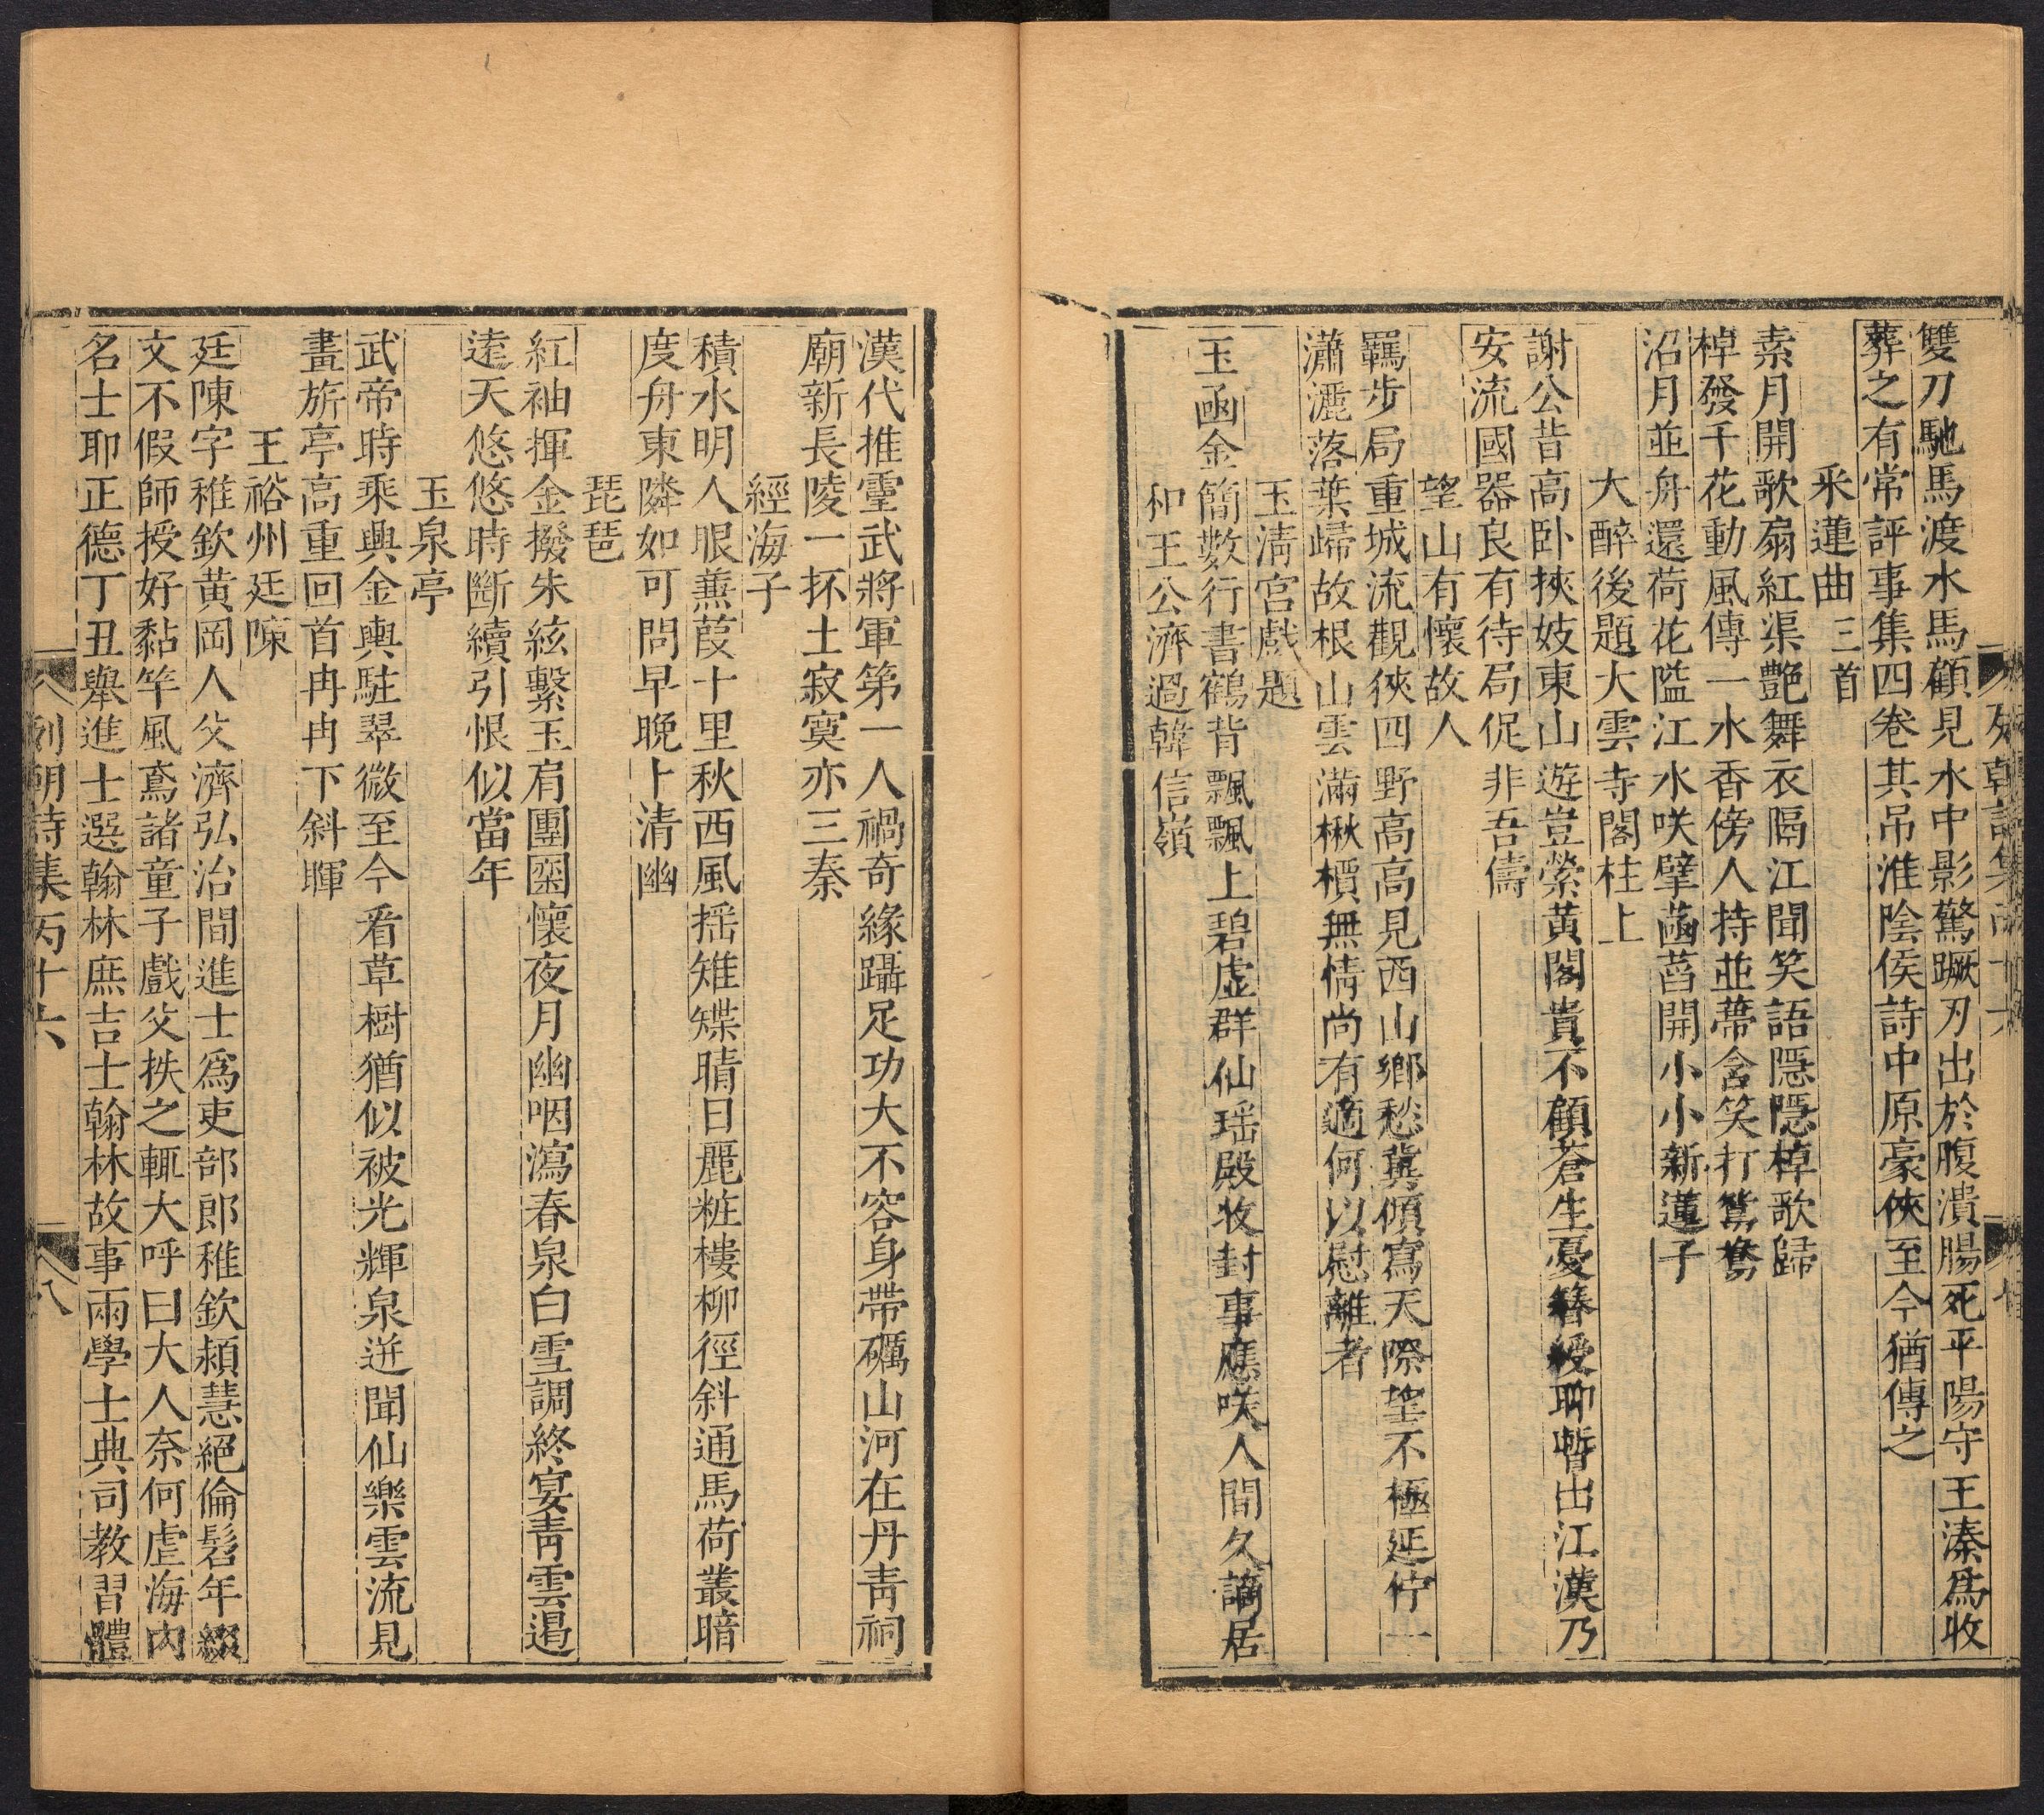 雙刀馳馬渡水馬顧見水中影驚蹶刃出於腹潰腸死平陽守王溱爲收
葬之有常評事集四卷其吊淮陰侯詩中原豪俠至今猶傳之
采蓮曲三首
素月開歌扇紅渠艷舞衣隔江聞笑語隱隱棹歌歸
棹發千花動風傳一水香傍人持並蔕含笑打鴛鴦
沼月並舟還荷花隘江水咲擘菡萏開小小新蓮子
大醉後題大雲寺閣柱上
謝公昔高卧挾妓東山遊豈縈黃閣貴不顧蒼生憂簪綬聊暫出江漢乃
安流國器良有待局促非吾儔
望山有懷故人
羈步局重城流觀狹四野高高見西山鄉愁冀傾寫天際望不極延佇一
瀟灑落葉歸故根山雲滿楸檟無情尚有適何以慰離者
玉清宮戲題
玉函金簡數行書鶴背飄飄上碧虛群仙瑶殿收封事應咲人間久謫居
和王公濟過韓信嶺
漢代推靈武將軍第一人禍奇緣躡足功大不容身帶礪山河在丹青祠
廟新長陵一抔土寂寞亦三秦
經海子
積水明人眼蒹葭十里秋西風揺雉堞晴日麗粧樓柳徑斜通馬荷叢暗
度舟東隣如可問早晚卜清幽
琵琶
紅袖揮金撥朱絃繫玉肩團圞懷夜月幽咽瀉春泉白雪調終宴青雲遏
遠天悠悠時斷續引恨似當年
玉泉亭
武帝時乘興金輿駐翠微至今看草樹猶似被光輝泉迸聞仙樂雲流見
畫旂亭高重回首冉冉下斜暉
王裕州廷陳
廷陳字稚欽黃岡人父濟弘治間進士爲吏部郎稚欽熲慧絕倫髫年綴
文不假師授好黏竿風鳶諸童子戲父抶之輒大呼曰大人奈何虐海內
名士耶正德丁丑舉進士選翰林庶吉士翰林故事兩學士典司教習體
列朝詩集丙十六
八